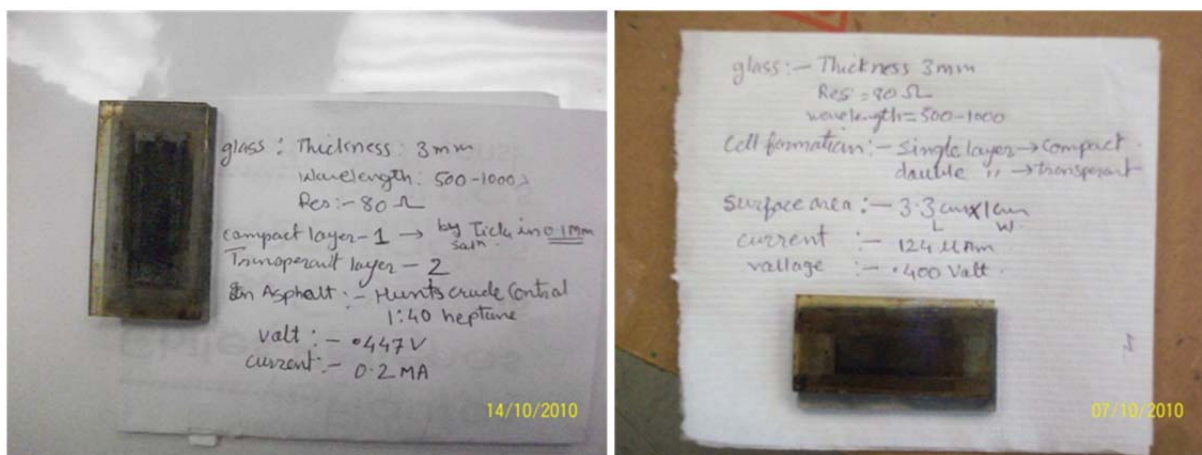 glass : Thickness : 3mm
Wavelength : 500-1000
Res :- 80 Ω
compact layer - 1 → by Ticl4 in 0.1 Mm
soln.
Transperait layer - 2
In Asphalt :- Hunts crude Contial
1:40 heptune
valt :- .447 V
current :- 0.2 MA
14/10/2010
glass :- Thickness 3mm
Res = 80 Ω
wavelength = 500-1000
Cell formation :- single layer → compact.
double " → transperant
surface area :- 3.3 cm x 1 cm
L W.
current :- 124 μAm
vallage :- .400 Valt.
07/10/2010